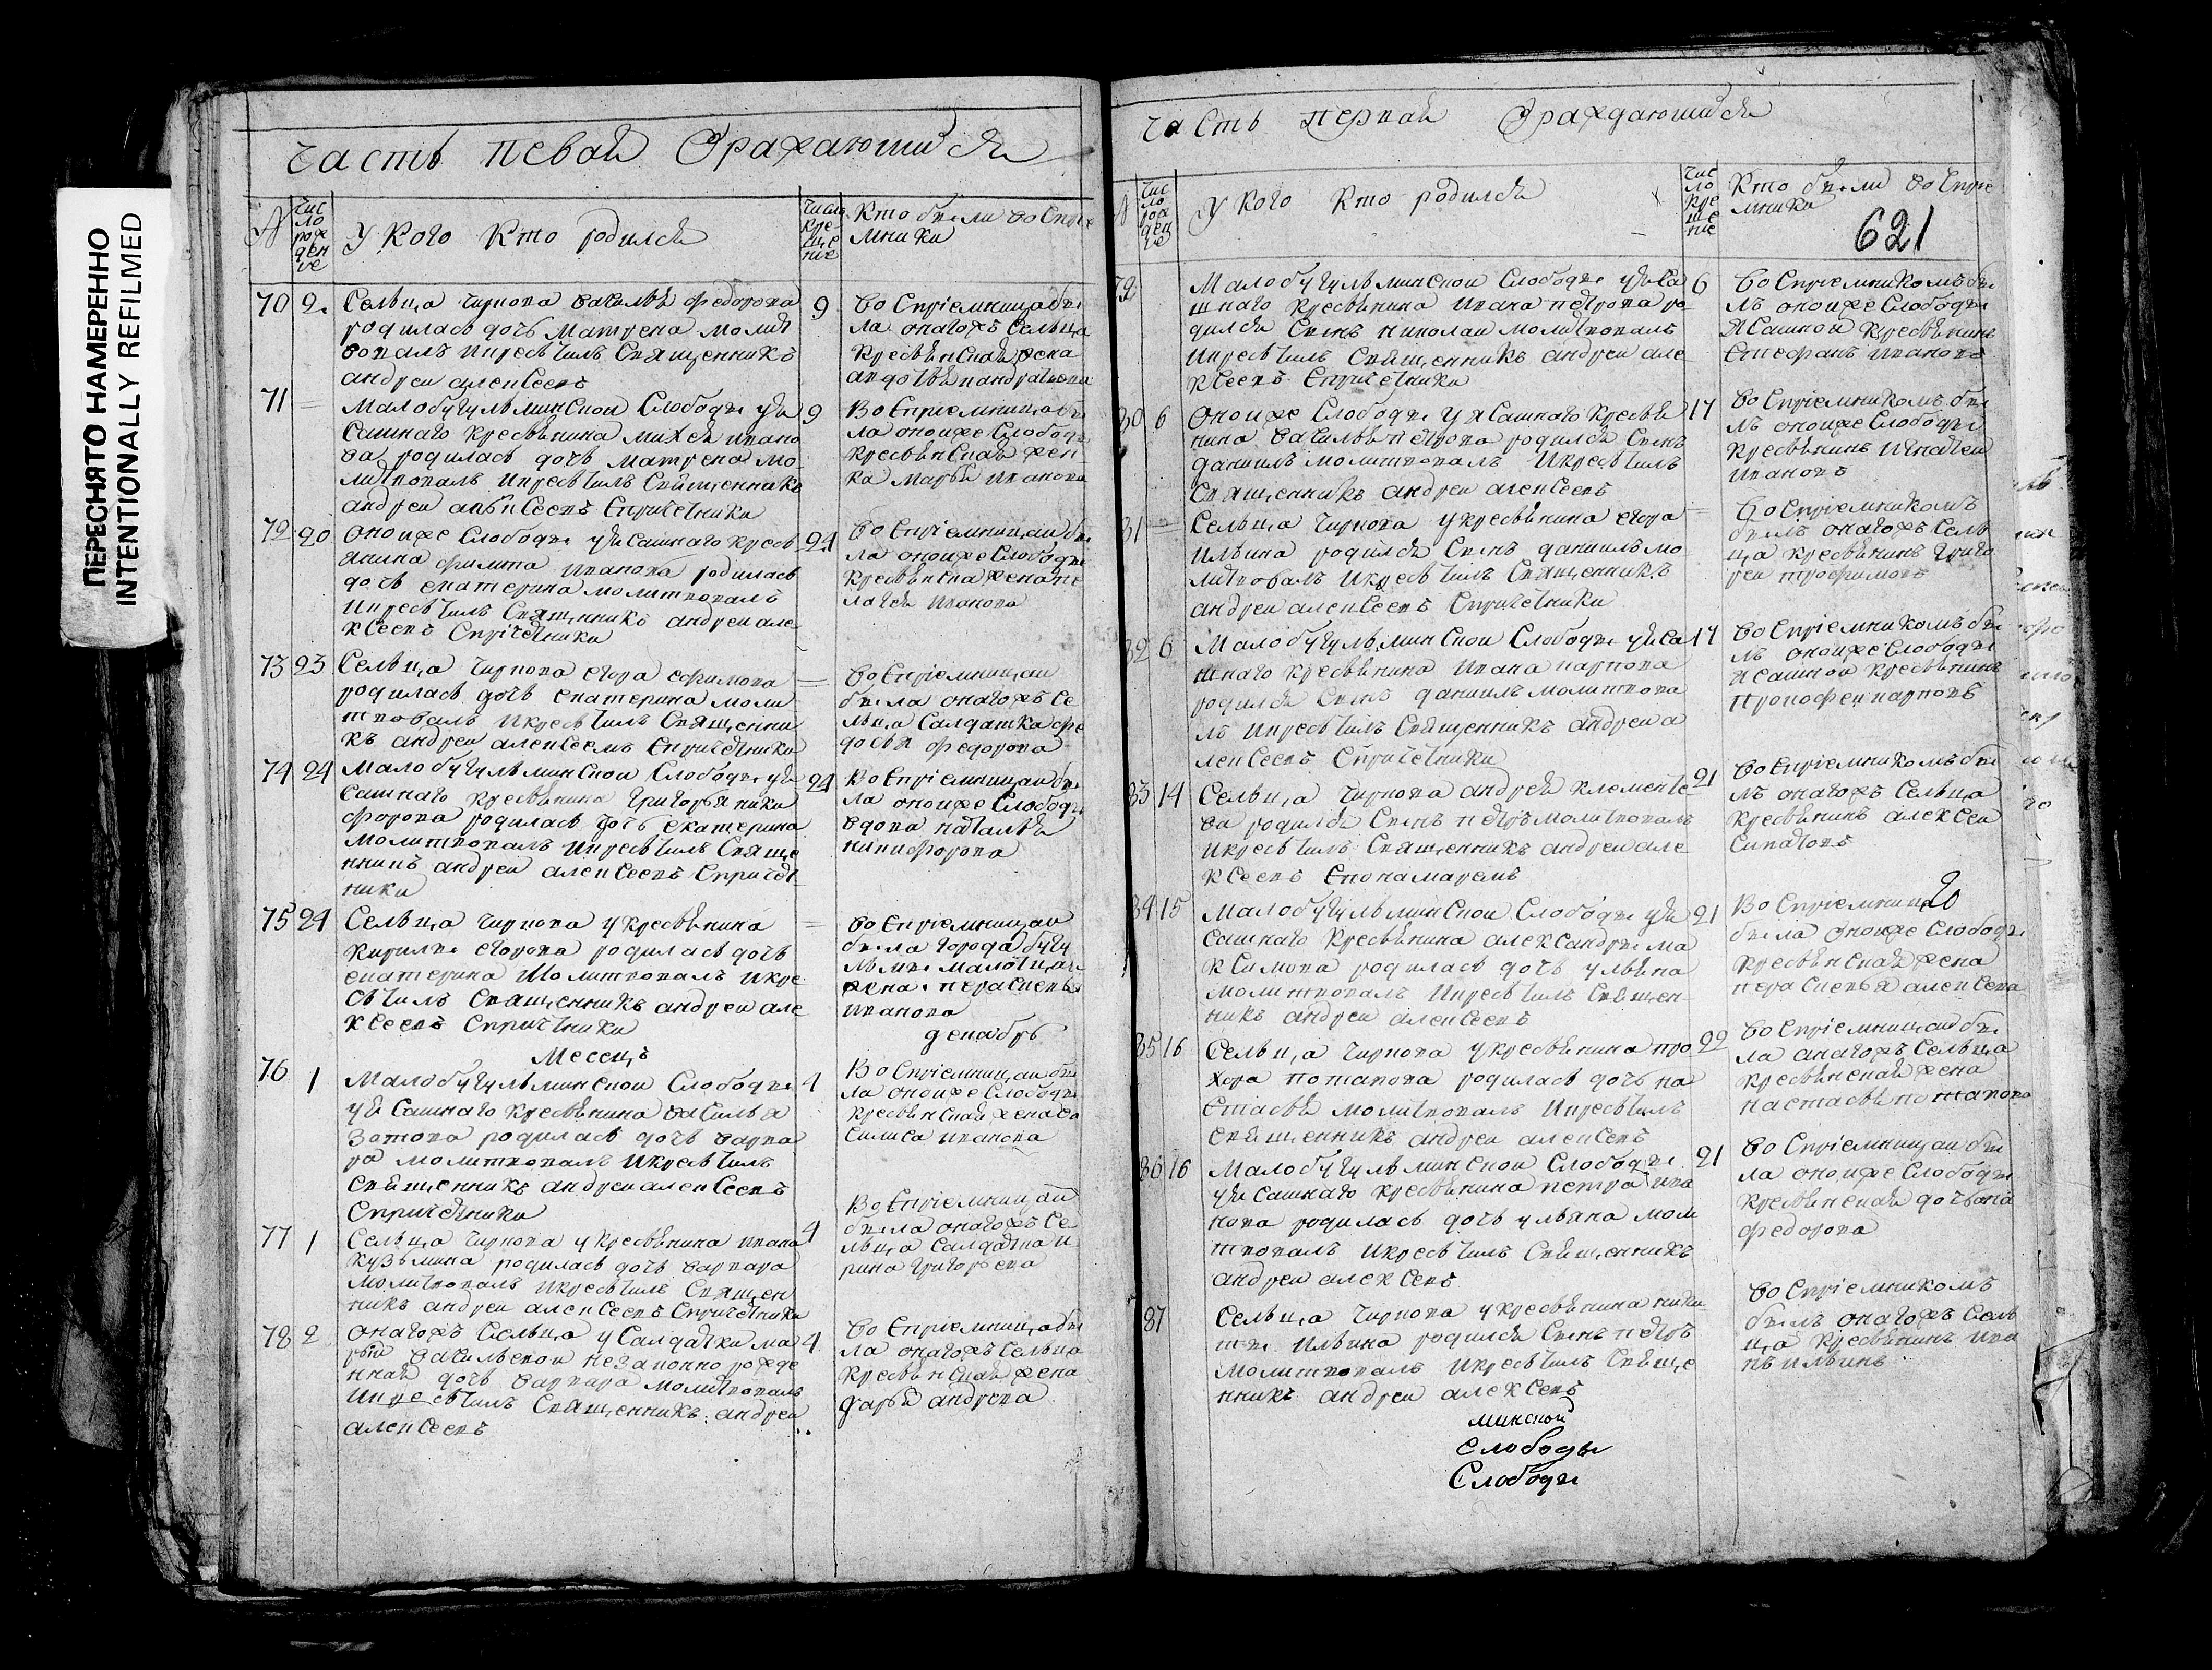 ПЕРЕСНЯТО НАМЕРЕННО
INTENTIONALLY REFILMED
часть певой Оражаюшийся
№
чис
ло
рож
ден
ие
у кого кто родился
число
кре-
ще
ние
кто были воспріе
мники
70 2 Сельца чиркова василья федорова
родилась дочь матрена молит
вовалъ икрестилъ священникъ
андреи алексеевъ
9
воспріемницаби
ла онагожъ сельца
крестьянская жена
авдотья
71 малобугульминской слободы уя
сашнаго крестьянина михея ивано
ва родилась дочь матрена мо-
литвовалъ икрестилъ священникъ
андреи алексеевъ спричетники
9
воспріемницабы
ла оноиже слободы
крестьянская жен
ка марья иванова
72 20 оноиже слободы уясашнаго кресть
янина филипа иванова родилась
дочь екатерина молитвовалъ
икрестилъ священникъ андреи але
ксеевъ спричетники
24
воспріемницаи бы
ла оноиже слободы
крестьянска жена пе
лагея иванова
73 23 Сельца чиркова егора ефимова
родилась дочь екатерина моли
твовалъ икрестилъ священни
къ андреи алексеевъ спричетники
=
воспріемницаи
была онагожъ се
льца салдатка фе
досья федорова
74 24 малобугульминской слободы уя
сашнаго крестьянина григорья ники
форова родилась дочь екатерина
молитвовалъ икрестилъ свяще
нникъ андреи алексеевъ спричет
ники
24
воспріемницаи бы
ла оноиже слободы
вдова наталья
никифорова
75 24 Сельца чиркова укрестьянина
кирилы егорова родилась дочь
екатерина молитвовалъ икре
стилъ священникъ андреи але
ксеевъ спричетники
=
воспріемницаи
была города бугу
льмы
жена парасковья
иванова
месецъ декабрь
76 1 малобугульминской слободы
уясашнаго крестьянина василья
зотова родилась дочь варва
ра молитвовалъ икрестилъ
священникъ андреи алексеевъ
спричетники
4
воспріемницаи бы
ла оноиже слободы
крестьянская жена ва
силиса иванова
77 1 Сельца чиркова укрестьянина ивана
кузьмина родилась дочь варвара
молитвовалъ икрестилъ священ
никъ андреи алексеевъ спричетники
4
воспріемницаи
была онагожъ се
льца салдатка и
рина григорьева
78 2 онагожъ сельца у салдатки ма
рьи васильевой незаконно рожде
нная дочь варвара молитвовалъ
икрестилъ священникъ андреи
алексеевъ
4
воспріемницабы
ла онагожъ сельца
крестьянская жена
дарья андреева
часть первая Ораждаюшийся
чис
ло
рож
ден
ие
у кого кто родился
чис
ло
кре
ще
ние
кто были воспріе
мники
621
79 малобугульминской слободы уяса
шнаго крестьянина ивана петрова ро
дился сынъ николаи молитвовалъ
икрестилъ священникъ андреи але
ксеевъ спричетники
6
воспріемникомъ бы
лъ оноиже слободы
ясашной крестьянинъ
стефанъ ивановъ
80 6 оноиже слободы у ясашнаго крестья
нина василья петрова родился сынъ
даниилъ молитвовалъ икрестилъ
священникъ андреи алексеевъ
17
воспріемникомъ бы
лъ оноиже слободы
крестьянинъ игнатеи
ивановъ
81 = Сельца чиркова укрестьянина егора
ильина родился сынъ даниилъ мо
литвовалъ икрестилъ священникъ
андреи алексеевъ спричетники
=
воспріемникомъ
былъ онагожъ сель
ца крестьянинъ григо
реи трофимовъ
82 6 малобугульминской слободы уяса
шнаго крестьянина ивана карпова
родился сынъ даниилъ молитвова
лъ икрестилъ священникъ андреи а
лексеевъ спричетники
17
воспріемникомъ бы
лъ оноиже слободы
ясашной крестьянинъ
прокофеи карповъ
83 14 Сельца чиркова андрея клементе
ва родился сынъ петръ молитвовалъ
икрестилъ священникъ андреи але
ксеевъ спонамаремъ
21
воспріемникомъ бы
лъ онагожъ сельца
крестьянинъ алексеи
84 15 малобугульминской слободы уя
сашнаго крестьянина александры ма
ксимова родилась дочь ульяна
молитвовалъ икрестилъ священ
никъ андреи алексеевъ
21
воспріемницею
была оноиже слободы
крестьянская жена
парасковья алексева
85 16 Сельца чиркова укрестьянина про
хора потапова родилась дочь на
стасья молитвовалъ икрестилъ
священникъ андреи алексеевъ
22
воспріемницаи бы
ла анагожъ сельца
крестьянская жена
настасья потапова
86 16 малобугульминской слободы
уясашнаго крестьянина петра ива
нова родилась дочь ульяна моли
твовалъ икрестилъ священникъ
андреи алексевъ
21
воспріемницаи бы
ла оноиже слободы
крестьянская дочь
федорова
87 Сельца чиркова укрестьянина ники
ты ильина родился сынъ петръ
молитвовалъ икрестилъ свяще
нникъ андреи алексевъ
воспріемникомъ
былъ онагожъ сель
ца крестьянинъ ива
нъ ильинъ
минской
слободы
слободы